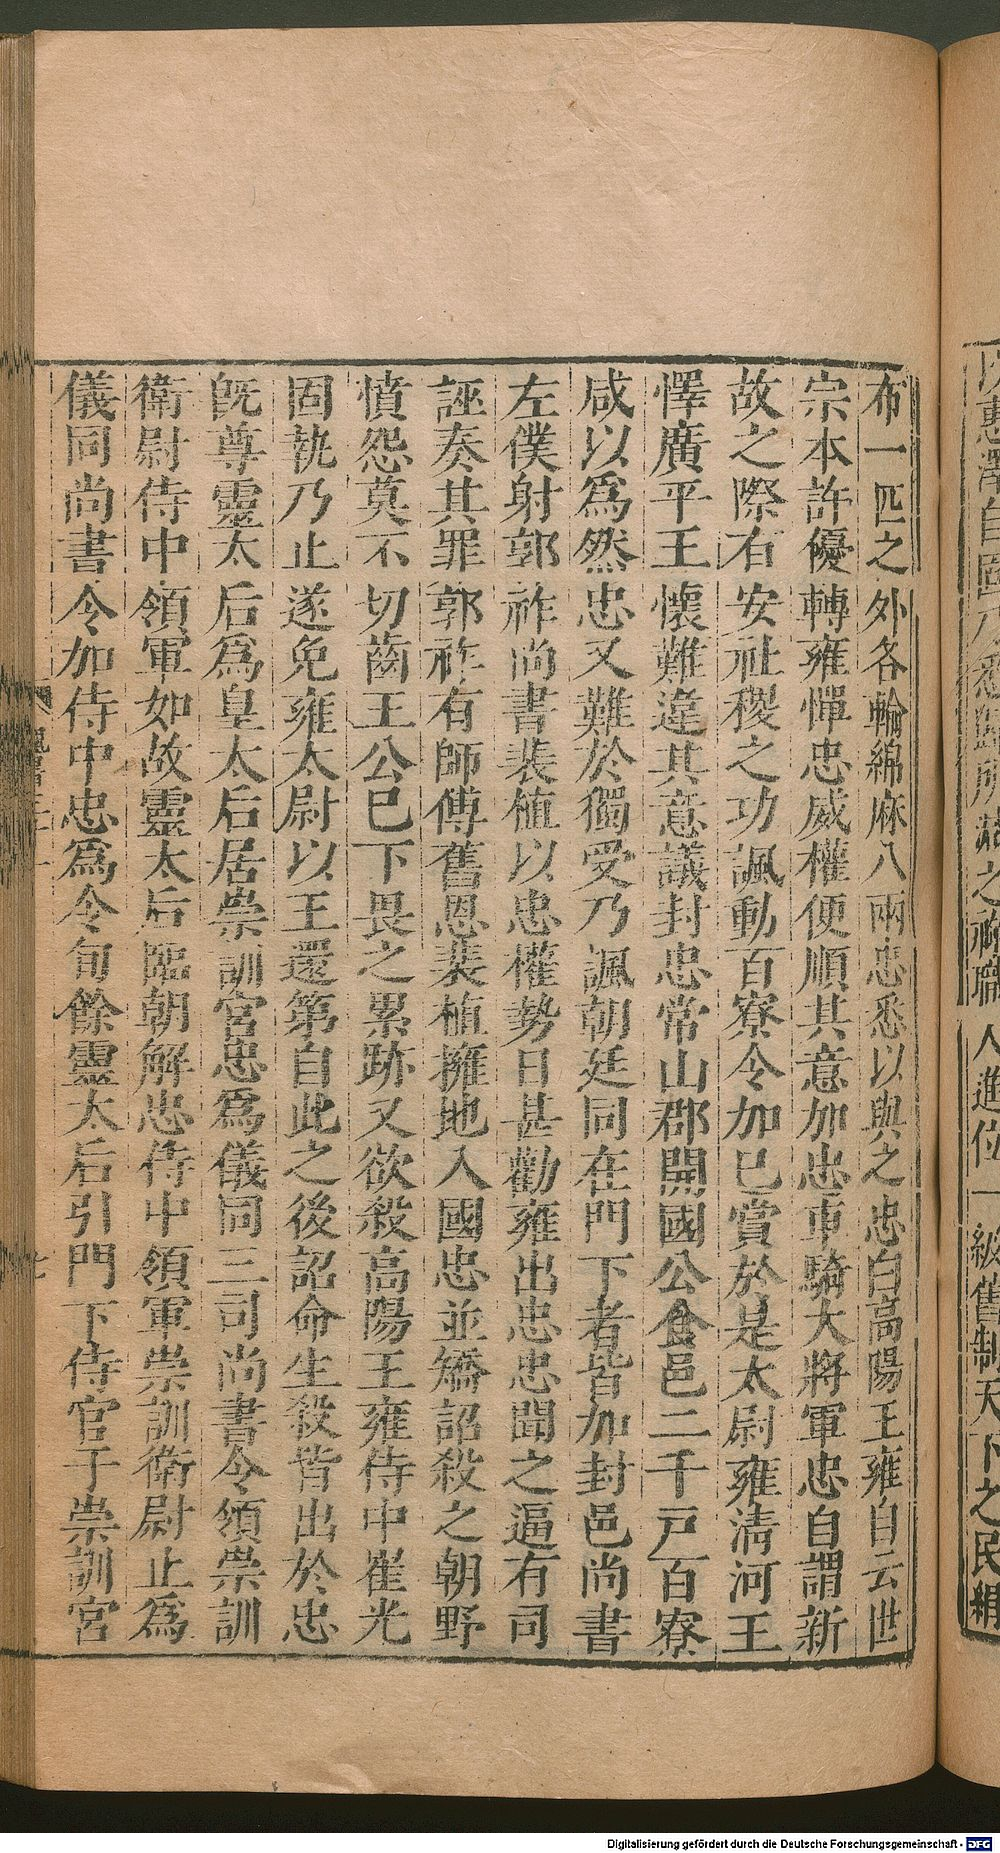 布一匹之外各輸綿麻八兩忠悉以與之忠白高陽王雍自云世
宗本許優轉雍憚忠威權便順其意加忠車騎大將軍忠自謂新
故之際有安社稷之功諷動百寮令加已賞於是太尉雍清河王
懌廣平王懷難違其意議封忠常山郡開國公食邑二千戸百寮
咸以爲然忠又難於獨受乃諷朝廷同在門下者皆加封邑尚書
左僕射郭祚尚書裴植以忠權勢日甚勸雍出忠忠聞之逼有司
誣奏其罪郭祚有師傅舊恩裴植擁地入國忠並矯詔殺之朝野
憤怨莫不切齒王公已下畏之累跡又欲殺高陽王雍侍中崔光
固執乃止遂免雍太尉以王還第自此之後詔命生殺皆出於忠
旣尊靈太后爲皇太后居崇訓宮忠爲儀同三司尚書令領崇訓
衛尉侍中領軍如故靈太后臨朝解忠侍中領軍崇訓衛尉止爲
儀同尚書令加侍中忠爲令旬餘靈太后引門下侍官于崇訓宮
Digitalisierung gefördert durch die Deutsche Forschungsgemeinschaft - DFG